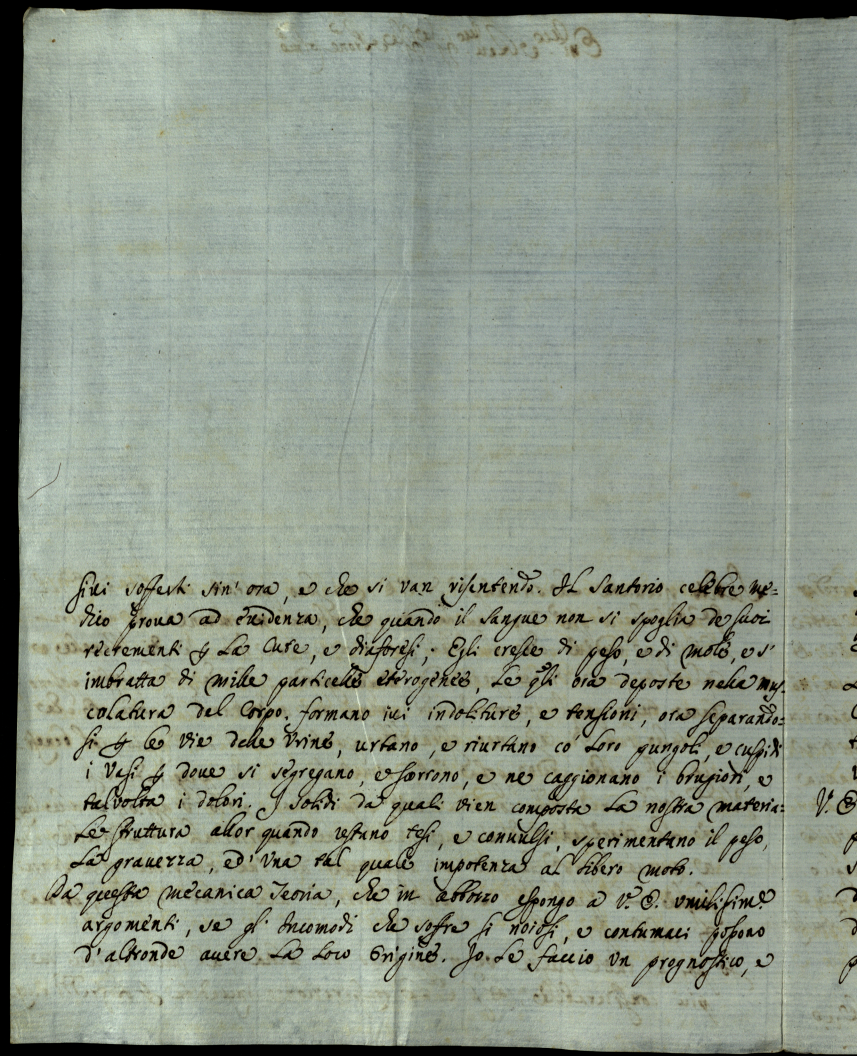 sivi sofferti sin' ora, e che si van risentendo. Il Santorio celebre Me-
dico prova ad evidenza, che quando il sangue non si spoglia de suoi
recrementi p. La Cute, e diaforesi; Egli cresce di peso, e di mole, e s'
imbratta di mille particelle eterogenee, Le qli ora deposte nella mus-
colatura del Corpo, formano ivi indoliture, e tensioni, ora separando-
si p. le vie delle Vrine, urtano, e riurtano co' Loro pungoli, e cuspidi
i Vasi p. dove si segregano, e scorrono, e ne caggionano i brugiori, e
talvolta i dolori. I solidi da quali vien composta La nostra materia-
Le struttura allor quando restano tesi, e convulsi, sperimentano il peso,
La gravezza, ed' Vna tal quale impotenza al libero moto.
Da questa mecanica Teoria, che in abbozzo espongo a V. E. umilissime
argomenti, se gl' Incomodi che soffre si noiosi, e contumaci possono
d'altronde avere La Loro Origine. Io Le faccio Vn prognostico, e
V. E